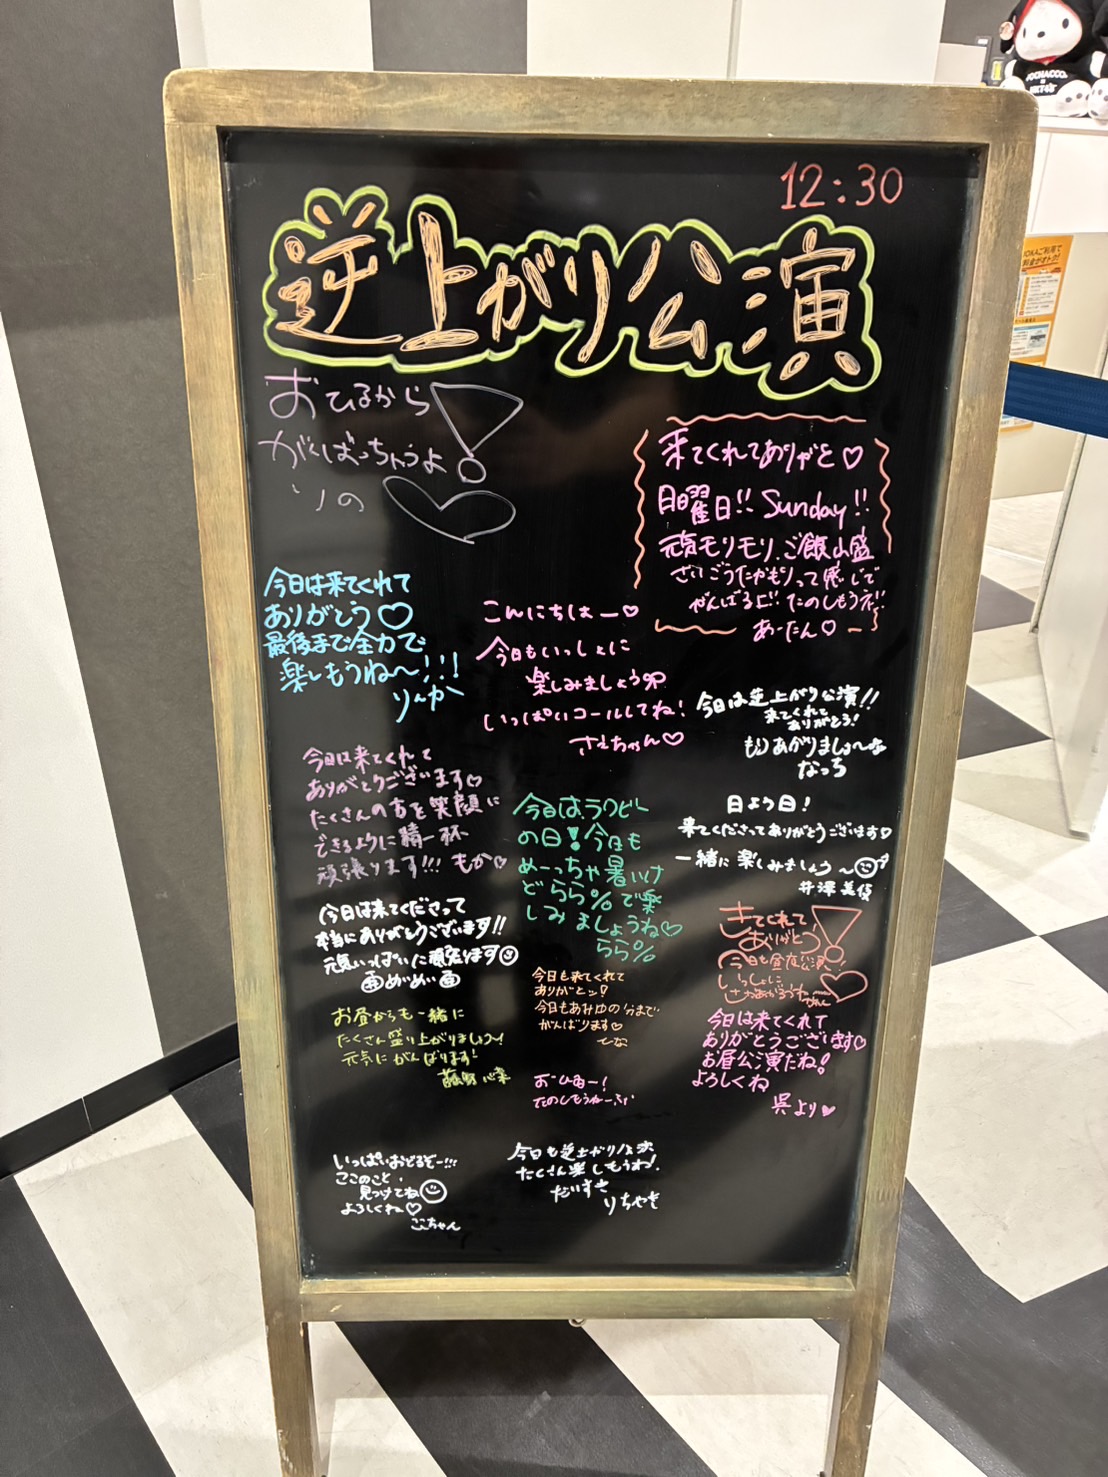 12:30
逆上がり公演
おひるから
がんばっちゃうよ!
りの♡
来てくれてありがと♡
日曜日!! Sunday!!
元気モリモリ、ご飯山盛
さいごうたかもりって感じで
がんばるよ!! たのしもうネ!!
あーたん♡
今日は来てくれて
ありがとう♡
最後まで全力で
楽しもうね〜!!!
りんか
こんにちはー♡
今日もいっしょに
楽しみましょう
いっぱいコールしてね!
さえちゃん♡
今日は逆上がり公演!!
来てくれて
ありがとう!
もりあがりましょーな
なっち
今日は来てくれて
ありがとうございます♡
たくさんの方を笑顔に
できるように精一杯
頑張ります!!! もか♡
今日はラグビー
の日!今日も
めーっちゃ暑いけ
ど らら%で楽
しみましょうね♡
らら%
日よう日!
来てくださってありがとうございます♡
一緒に楽しみましょう〜
井澤美優
今日は来てくださって
本当にありがとうございます!!
元気いっぱいに頑張ります
めいめい
きてくれて
ありがとう!
今日も昼夜公演!
いっしょに
今日も来てくれて
ありがとッ!
今日もあみゆの分まで
がんばります♡
ひな
お昼からも一緒に
たくさん盛り上がりましょ〜!
元気にがんばります!
今日は来てくれて
ありがとうございます♡
お昼公演だね!
よろしくね
呉より♡
おひるー!
たのしもうねー
いっぱいおどるぞー!!!
ここのこと、
見つけてね
よろしくね♡
ここちゃん
今日も逆上がり公演
たくさん楽しもうね!
だいすき